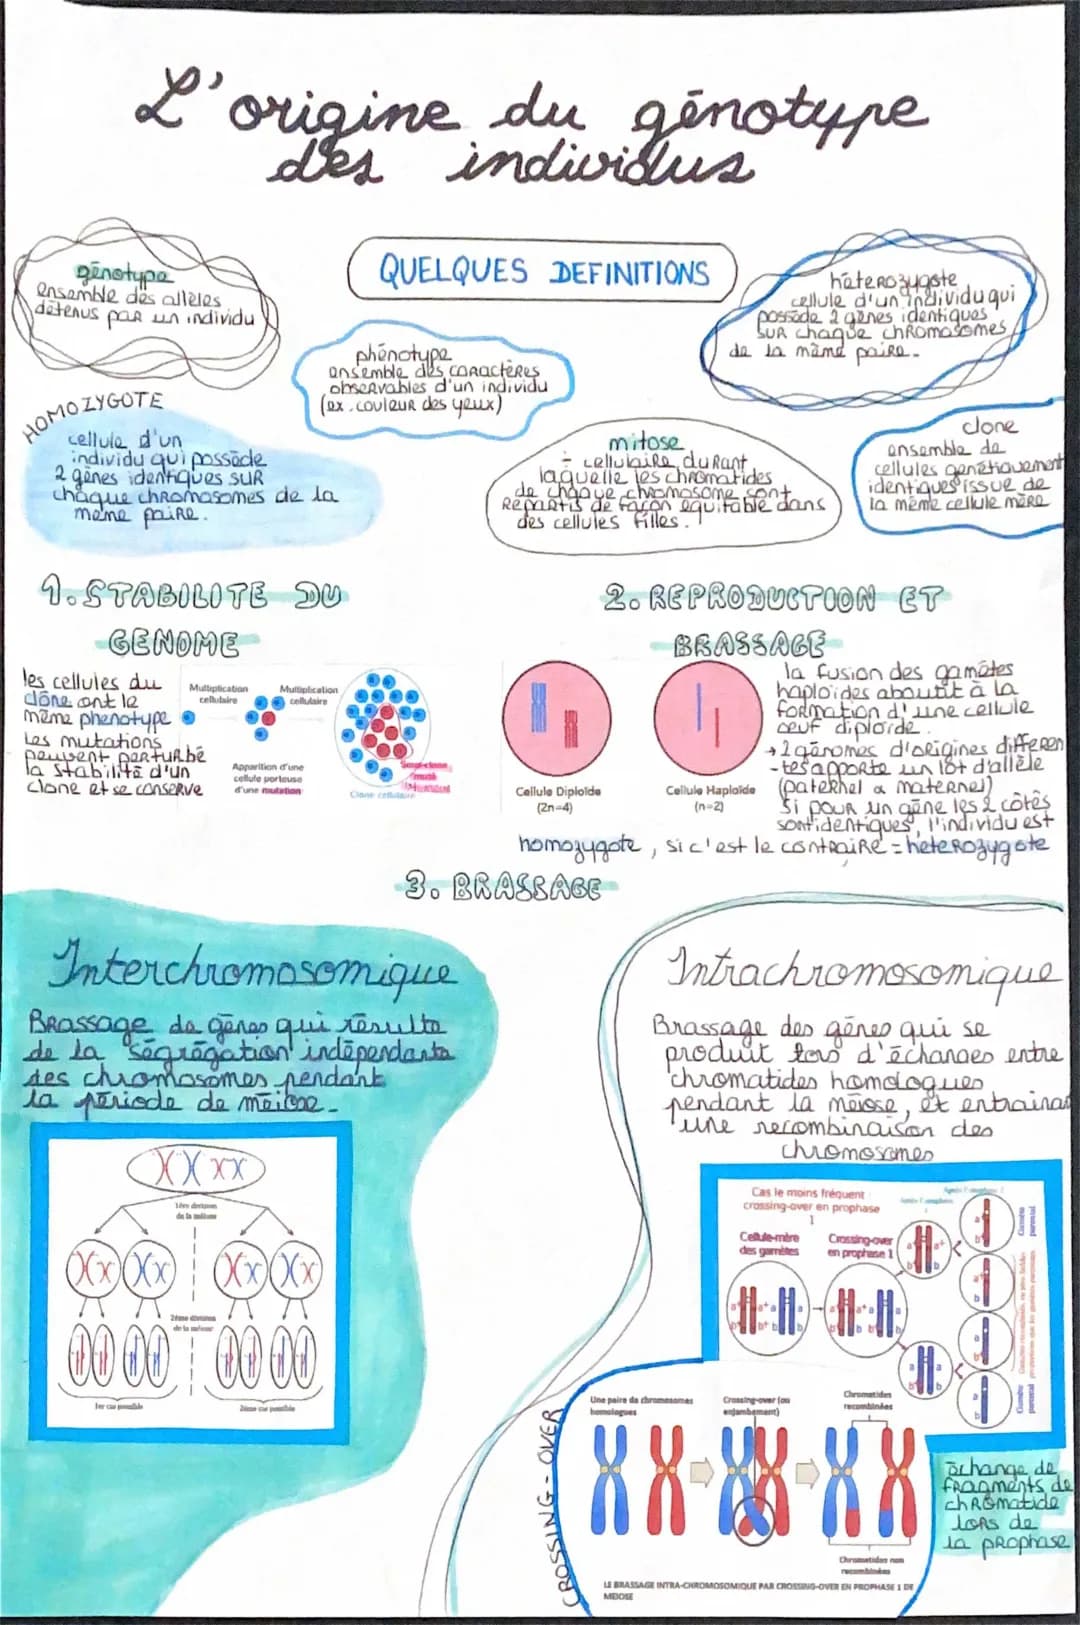 L'origine du génotype
des individus
génotype
ensemble des allèles
détenus par un individu
QUELQUES DEFINITIONS
hétérozygote
cellule d'un individu qui
possède 2 gènes identiques
sur chaque chromosomes
de la même paire.
phénotype
ensemble des caractères
observables d'un individu
(ex. couleur des yeux)
HOMOZYGOTE
cellule d'un
individu qui possède
2 gènes identiques sur
chaque chromosomes de la
même paire.
mitose
÷ cellulaire durant
laquelle les chromatides
de chaque chromosome sont
Répartis de façon équitable dans
des cellules filles.
clone
ensemble de
cellules génétiquement
identiques issue de
la même cellule mère
1. STABILITE DU
GENOME
les cellules du
clône ont le
même phenotype
Les mutations
peuvent perturbé
la stabilité d'un
clone et se conserve
Multiplication
cellulaire
Multiplication
cellulaire
Apparition d'une
cellule porteuse
d'une mutation
Clone cellulaire
Sous-clone
muté
2. REPRODUCTION ET
BRASSAGE
Cellule Diploïde
(2n=4)
Cellule Haploïde
(n=2)
la fusion des gamètes
haploïdes aboutit à la
formation d'une cellule
oeuf diploïde.
→ 2 génomes d'origines différen
-tes apporte un lot d'allèle
(paternel & maternel)
Si pour un gène les 2 côtés
sont identiques, l'individu est
homozygote, si c'est le contraire = hétérozygote
3. BRASSAGE
Interchromosomique
Brassage de gènes qui résulte
de la ségrégation indépendante
des chromosomes pendant
la période de méiose.
1ère division
de la méiose
2ème division
de la méiose
1er cas possible
2ème cas possible
Intrachromosomique
Brassage des gènes qui se
produit lors d'échanges entre
chromatides homologues
pendant la méiose, et entrainant
une recombinaison des
chromosomes
Cas le moins fréquent
crossing-over en prophase
1
Cellule-mère
des gamètes
Crossing-over
en prophase 1
CROSSING-OVER
Une paire de chromosomes
homologues
Crossing-over (ou
enjambement)
Chromatides
recombinées
Chromatides non
recombinées
LE BRASSAGE INTRA-CHROMOSOMIQUE PAR CROSSING-OVER EN PROPHASE 1 DE
MEIOSE
échange de
fragments de
chromatide
lors de
la prophase